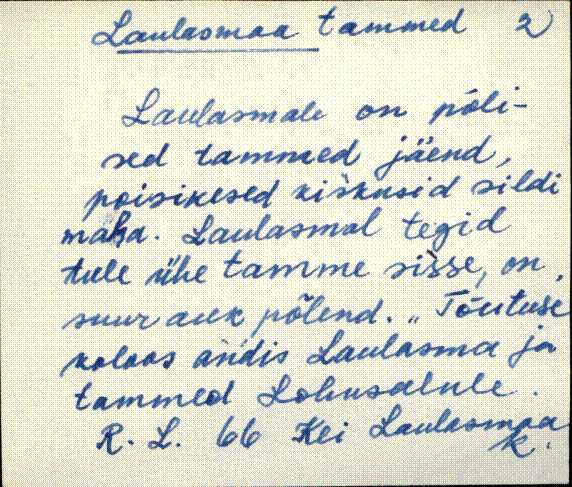 Laulasmaa tammed 2)
Laulasmale on põli-
sed tammed jäend,
poisikesed kiskusid sildi
maha. Laulasmal tegid
tule ühe tamme sisse, on
suur auk põlend. „Tõutuse
koloos andis Laulasma ja
tammed Lohusalule.
R. L. 66 Kei Laulasmaa
k.